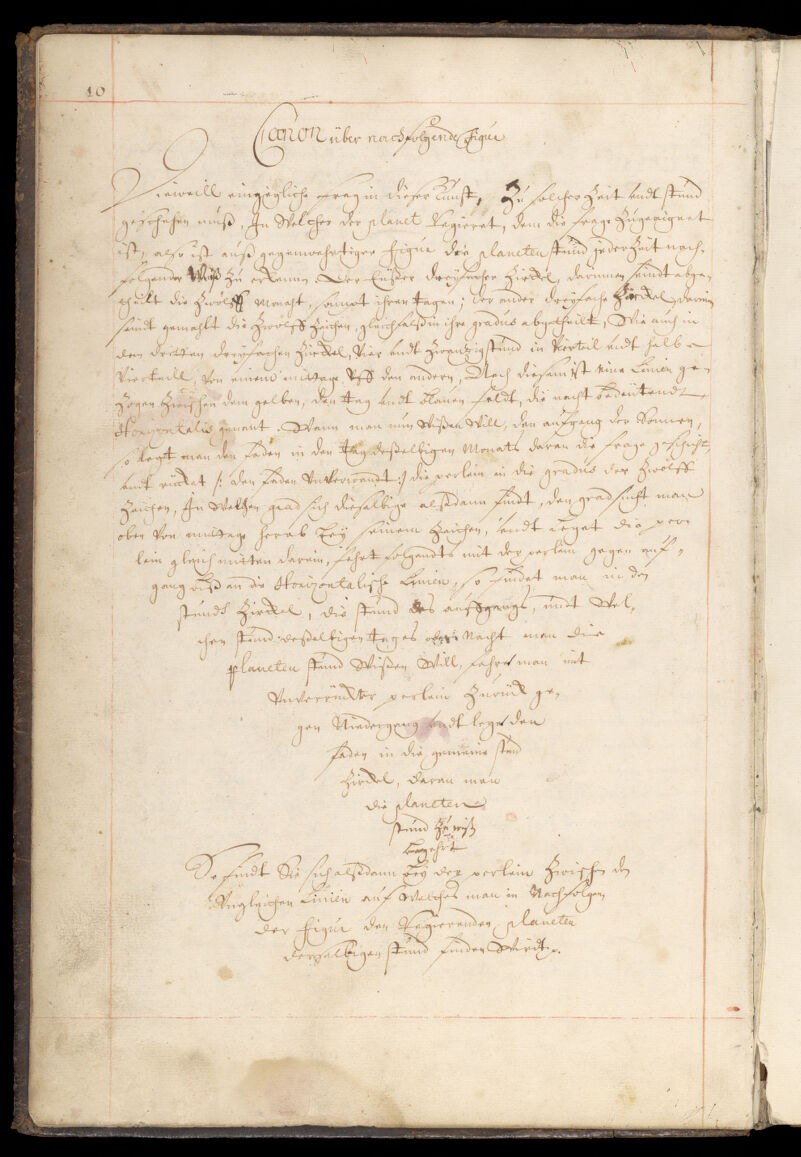 10
Canon über nachfolgende Figur
Dieweill eingegliche frag in dieser Kunst, Zu solcher Zeit undt stund
geschehen muß, In Welcher der planet Regieret, dem die frage Zugeaignet
ist, also ist auß gegenwehrtiger Figur die planeten stund jeder Zeit nach-
folgender Weiß Zu erkennen. Der Eusser dreyfacher Zirckel, darinnen seindt abge-
theilt die Zwölff Monaht, sampt ihren tagen; der ander dreyfache Zirckel, darin
seindt gemahlt die Zwölff Zeichen, gleichfals in ihre gradus abgetheilt, Wie auch in
den dritten dreyfachen Zirckel, Vier undt Zwantzig stund in Vierteil undt halbe
Vierteill, Von einem mittage Uff den andern, Nach diesem ist eine Linien ge-
Zogen Zwischen dem gelben, den tag undt blauen feldt, die nacht bedeutendt
Horizontalis genant. Wann man nun Wißen Will, den aufgang der Sonnen,
so legt man den faden in den tag deßelbigen Monats daran die frage geschicht,
undt rücket /: den faden Unverwandt :/ die perlein in die gradus der Zwölff
Zeichen, In Welchen grad sich dieselbige alsdann findt, den grad sucht man
oben Von mittage herab bey seinem Zeichen, undt leget die per-
lein gleich mitten darein, fehrt folgendts mit der perlein gegen auf-
gang biß an die Horizontalische Linien, so findet man in den
stundt Zirckel, die stund des auffgangs, undt Wel-
chen stund deßelbigen tages oder Nacht man die
planeten stund Wißen Will, fahre man mit
Unverrückter perlein Zurück ge-
gen Niedergang undt lege den
faden in die gemeine stund
Zirckel, daran man
die planeten
stund Zu wiß
begehrt
So findt Sie sich alsdann bey der perlein Zwischen den
Ungleichen Linien auf Welches man in Nachfolgen
der Figur den Regierenden planeten
derselbigen stund finden Wirdt.